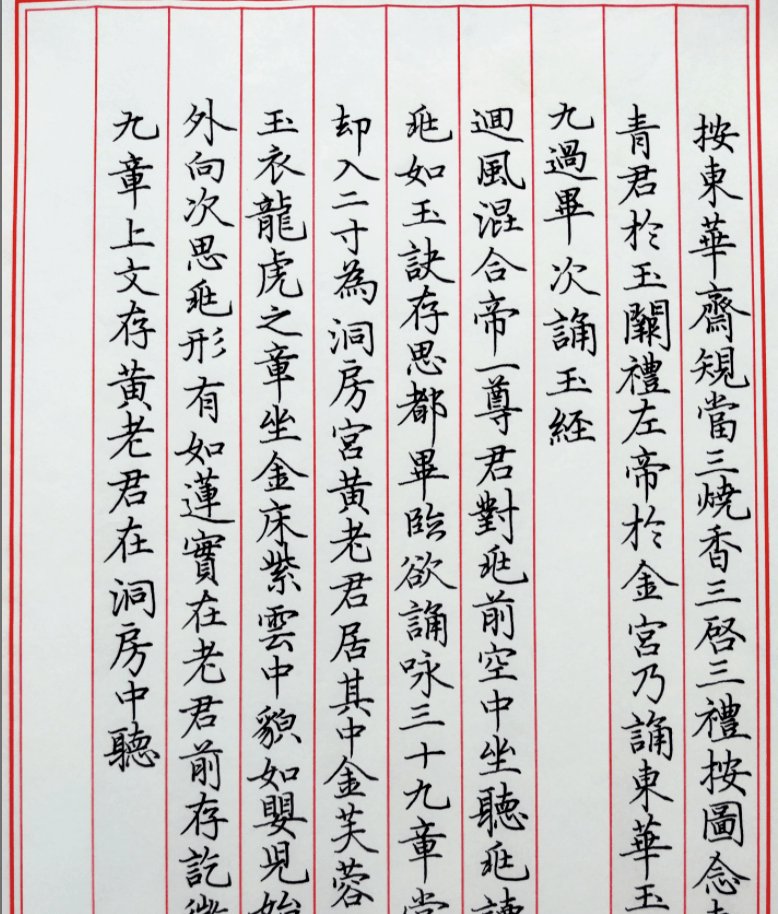 按東華齋䂓當三燒香三啓三禮按圖念
青君於玉闕禮左帝於金宮乃誦東華玉
九過畢次誦玉経
迴風混合帝一尊君對兆前空中坐聽兆讀
兆如玉訣存思都畢臨欲誦咏三十九章當
却入二寸為洞房宮黃老君居其中金芙蓉
玉衣龍虎之章坐金床紫雲中貌如嬰兒始
外向次思兆形有如蓮實在老君前存訖微
九章上文存黃老君在洞房中聽